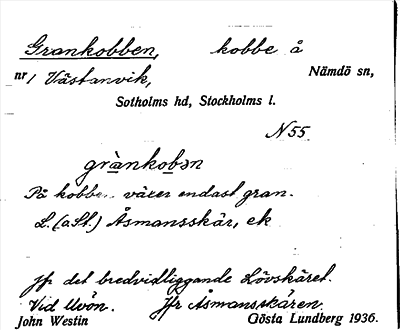 Grankobben, kobbe å
nr 1 Västanvik, Nämdö sn,
Sotholms hd, Stockholms l.
N 55
grànkobən
På kobben växer endast gran.
L. (a.St.) Åsmansskär, ek
Jfr det bredvidliggande Lövskäret.
Vid Uvön. Jfr Åsmansskären
John Westin Gösta Lundberg 1936.